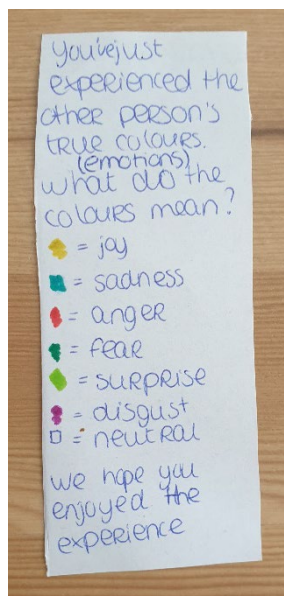 You'vejust
experienced the
other person's
true colours.
(emotions)
what do the
colours mean?
= joy
= sadness
= anger
= fear
= surprise
= disgust
= neutral
we hope you
enjoyed the
experience